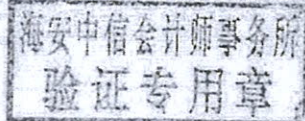 海安中信会计师事务所
验证专用章